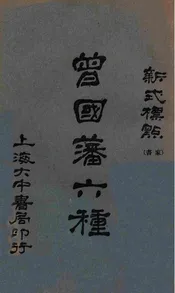 新式標點
(家書)
曾國藩六種
上海大中書局印行